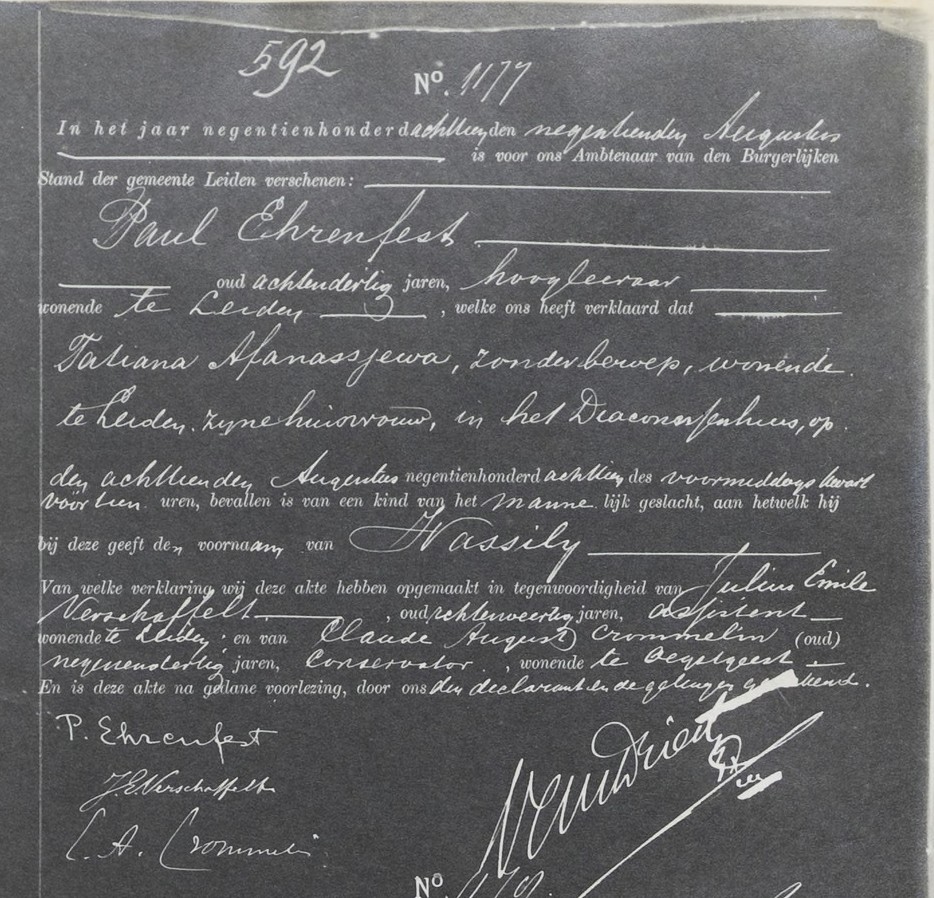 592
No. 1177
In het jaar negentienhonderd achttien den negentienden Augustus
is voor ons Ambtenaar van den Burgerlijken
Stand der gemeente Leiden verschenen:
Paul Ehrenfest
oud achtendertig jaren, hoogleeraar
wonende te Leiden, welke ons heeft verklaard dat
Tatiana Afanassjewa, zonder beroep, wonende
te Leiden, zyne huisvrouw, in het Diaconessenhuis, op
den achttienden Augustus negentienhonderd achttien des voormiddags kwart
vóór tien uren, bevallen is van een kind van het mannelijk geslacht, aan hetwelk hij
bij deze geeft den voornaam van Wassily
Van welke verklaring wij deze akte hebben opgemaakt in tegenwoordigheid van Julius Emile
Verschaffelt, oud achtenveertig jaren, assistent
wonende te Leiden en van Claude August Crommelin (oud)
negenendertig jaren, Conservator, wonende te Oegstgeest
En is deze akte na gedane voorlezing, door ons den declarant en de getuigen geteekend.
P. Ehrenfest
J.E. Verschaffelt
C. A. Crommelin
No